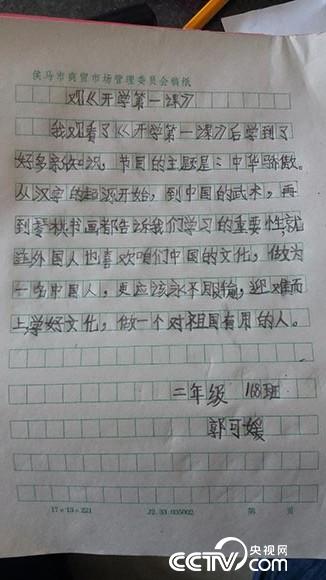 侯马市商贸市场管理委员会稿纸
观《开学第一课》
我观看了《开学第一课》后学到了
好多知识，节目的主题是：中华骄傲。
从汉字的起源开始，到中国的武术，再
到琴棋书画都告诉我们学习的重要性就
连外国人也喜欢咱们中国的文化，做为
一名中国人，更应该永不服输，迎难而
上学好文化，做一个对祖国有用的人。
二年级 168班
郭可媛
17×13=221 J2.33.035002 第 页
CCTV.com 央视网
cctv.com